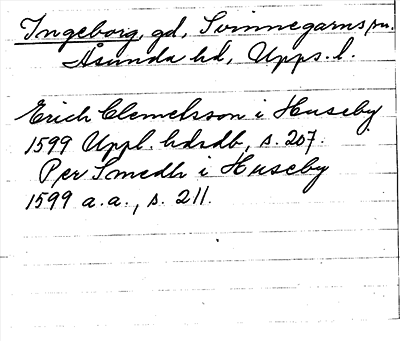 Ingeborg, gd, Svinnegarns sn.
Åsunda hd, Upps. l.
Erich Clemetsson i Huseby
1599 Uppl. hdrdb, s. 207.
Per Smedh i Huseby
1599 a.a., s. 211.